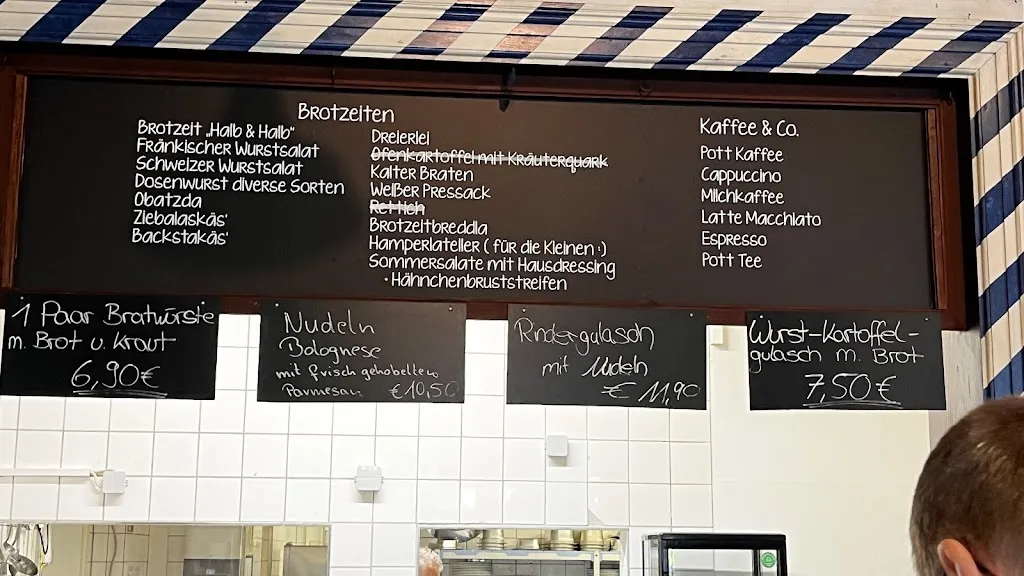 Brotzeiten
Brotzeit „Halb & Halb"
Fränkischer Wurstsalat
Schweizer Wurstsalat
Dosenwurst diverse Sorten
Obatzda
Ziebalaskäs'
Backstakäs'
Dreierlei
Ofenkartoffel mit Kräuterquark
Kalter Braten
Weißer Pressack
Rettich
Brotzeitbreddla
Hamperlateller ( für die Kleinen :)
Sommersalate mit Hausdressing
· Hähnchenbruststreifen
Kaffee & Co.
Pott Kaffee
Cappuccino
Milchkaffee
Latte Macchiato
Espresso
Pott Tee
1 Paar Bratwürste
m. Brot u. Kraut
6,90€
Nudeln
Bolognese
mit frisch gehobelten
Parmesan €10,50
Rindergulasch
mit Nudeln
€ 11,90
Wurst-Kartoffel-
gulasch m. Brot
7,50€